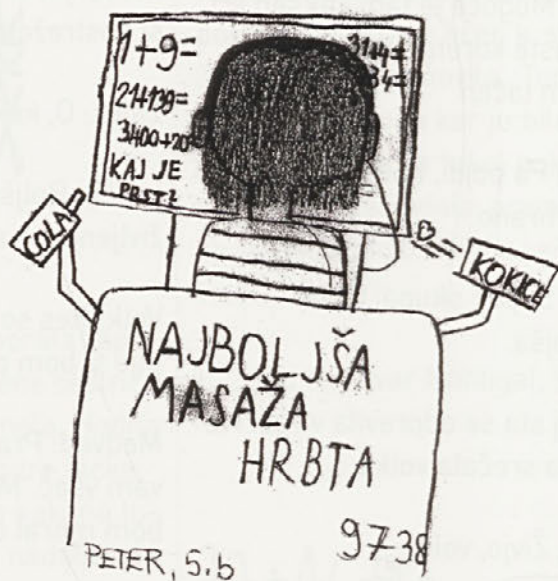 1+9=
21+139=
3400+20=
KAJ JE
PRST?
COLA
KOKICE
NAJBOLJŠA
MASAŽA
HRBTA
9738
PETER, 5.b